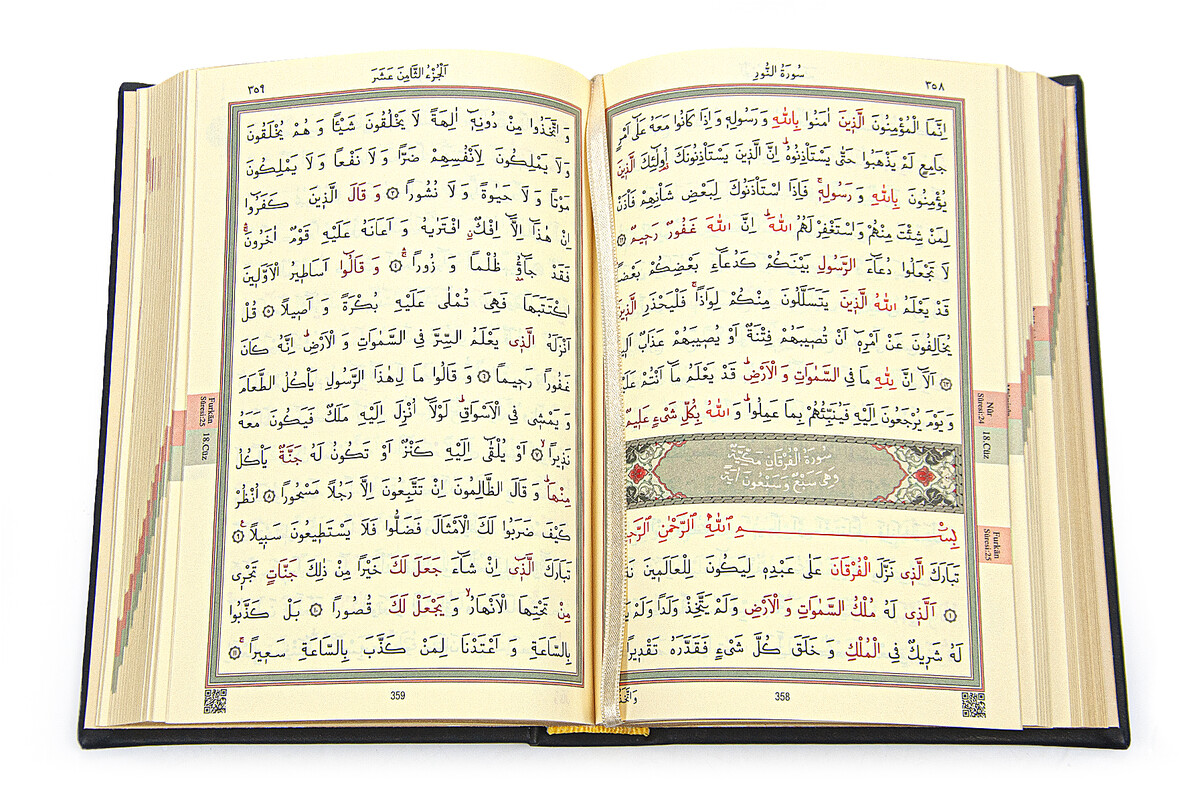 سُورَةُ النُّورِ
٣٥٨
اِنَّمَا الْمُؤْمِنُونَ الَّذِينَ اٰمَنُوا بِاللّٰهِ وَرَسُولِهٖ وَاِذَا كَانُوا مَعَهُ عَلٰٓى اَمْرٍ
جَامِعٍ لَمْ يَذْهَبُوا حَتّٰى يَسْتَأْذِنُوهُۜ اِنَّ الَّذٖينَ يَسْتَأْذِنُونَكَ اُو۬لٰٓئِكَ الَّذٖينَ
يُؤْمِنُونَ بِاللّٰهِ وَرَسُولِهٖۚ فَاِذَا اسْتَأْذَنُوكَ لِبَعْضِ شَأْنِهِمْ فَأْذَنْ
لِمَنْ شِئْتَ مِنْهُمْ وَاسْتَغْفِرْ لَهُمُ اللّٰهَۜ اِنَّ اللّٰهَ غَفُورٌ رَحٖيمٌ ﴿٦٢﴾
لَا تَجْعَلُوا دُعَٓاءَ الرَّسُولِ بَيْنَكُمْ كَدُعَٓاءِ بَعْضِكُمْ بَعْضًاۜ
قَدْ يَعْلَمُ اللّٰهُ الَّذٖينَ يَتَسَلَّلُونَ مِنْكُمْ لِوَاذًاۚ فَلْيَحْذَرِ الَّذٖينَ
يُخَالِفُونَ عَنْ اَمْرِهٖٓ اَنْ تُصٖيبَهُمْ فِتْنَةٌ اَوْ يُصٖيبَهُمْ عَذَابٌ
﴿٦٣﴾ اَلَٓا اِنَّ لِلّٰهِ مَا فِي السَّمٰوَاتِ وَالْاَرْضِۜ قَدْ يَعْلَمُ مَٓا اَنْتُمْ
وَيَوْمَ يُرْجَعُونَ اِلَيْهِ فَيُنَبِّئُهُمْ بِمَا عَمِلُواۜ وَاللّٰهُ بِكُلِّ شَيْءٍ عَلٖيمٌ
سُورَةُ الْفُرْقَانِ مَكِّيَّةٌ
وَهِيَ سَبْعٌ وَسَبْعُونَ اٰيَةً
بِسْمِ اللّٰهِ الرَّحْمٰنِ
تَبَارَكَ الَّذٖي نَزَّلَ الْفُرْقَانَ عَلٰى عَبْدِهٖ لِيَكُونَ لِلْعَالَمٖينَ
﴿١﴾ اَلَّذٖي لَهُ مُلْكُ السَّمٰوَاتِ وَالْاَرْضِ وَلَمْ يَتَّخِذْ وَلَدًا وَلَمْ
لَهُ شَرٖيكٌ فِي الْمُلْكِ وَخَلَقَ كُلَّ شَيْءٍ فَقَدَّرَهُ تَقْدٖيرًا
358
Nûr
Sûresi:24
18.Cüz
Furkân
Sûresi:25
اَلْجُزْءُ الثَّامِنَ عَشَرَ
٣٥٩
وَاتَّخَذُوا مِنْ دُونِهٖٓ اٰلِهَةً لَا يَخْلُقُونَ شَيْـًٔا وَهُمْ يُخْلَقُونَ
وَلَا يَمْلِكُونَ لِاَنْفُسِهِمْ ضَرًّا وَلَا نَفْعًا وَلَا يَمْلِكُونَ
مَوْتًا وَلَا حَيٰوةً وَلَا نُشُورًا ﴿٣﴾ وَقَالَ الَّذٖينَ كَفَرُٓوا
اِنْ هٰذَٓا اِلَّٓا اِفْكٌۨ افْتَرٰيهُ وَاَعَانَهُ عَلَيْهِ قَوْمٌ اٰخَرُونَۚ
فَقَدْ جَٓاؤُ۫ ظُلْمًا وَزُورًاۚ ﴿٤﴾ وَقَالُٓوا اَسَاطٖيرُ الْاَوَّلٖينَ
اكْتَتَبَهَا فَهِيَ تُمْلٰى عَلَيْهِ بُكْرَةً وَاَصٖيلًا ﴿٥﴾ قُلْ
اَنْزَلَهُ الَّذٖي يَعْلَمُ السِّرَّ فِي السَّمٰوَاتِ وَالْاَرْضِۜ اِنَّهُ كَانَ
غَفُورًا رَحٖيمًا ﴿٦﴾ وَقَالُوا مَا لِهٰذَا الرَّسُولِ يَأْكُلُ الطَّعَامَ
وَيَمْشٖي فِي الْاَسْوَاقِۜ لَوْلَٓا اُنْزِلَ اِلَيْهِ مَلَكٌ فَيَكُونَ مَعَهُ
نَذٖيرًاۙ ﴿٧﴾ اَوْ يُلْقٰٓى اِلَيْهِ كَنْزٌ اَوْ تَكُونُ لَهُ جَنَّةٌ يَأْكُلُ
مِنْهَاۜ وَقَالَ الظَّالِمُونَ اِنْ تَتَّبِعُونَ اِلَّا رَجُلًا مَسْحُورًا ﴿٨﴾ اُنْظُرْ
كَيْفَ ضَرَبُوا لَكَ الْاَمْثَالَ فَضَلُّوا فَلَا يَسْتَطٖيعُونَ سَبٖيلًاۚ ﴿٩﴾
تَبَارَكَ الَّذٖٓي اِنْ شَٓاءَ جَعَلَ لَكَ خَيْرًا مِنْ ذٰلِكَ جَنَّاتٍ تَجْرٖي
مِنْ تَحْتِهَا الْاَنْهَارُۙ وَيَجْعَلْ لَكَ قُصُورًا ﴿١٠﴾ بَلْ كَذَّبُوا
بِالسَّاعَةِ وَاَعْتَدْنَا لِمَنْ كَذَّبَ بِالسَّاعَةِ سَعٖيرًاۚ ﴿١١﴾
359
Furkân
Sûresi:25
18.Cüz